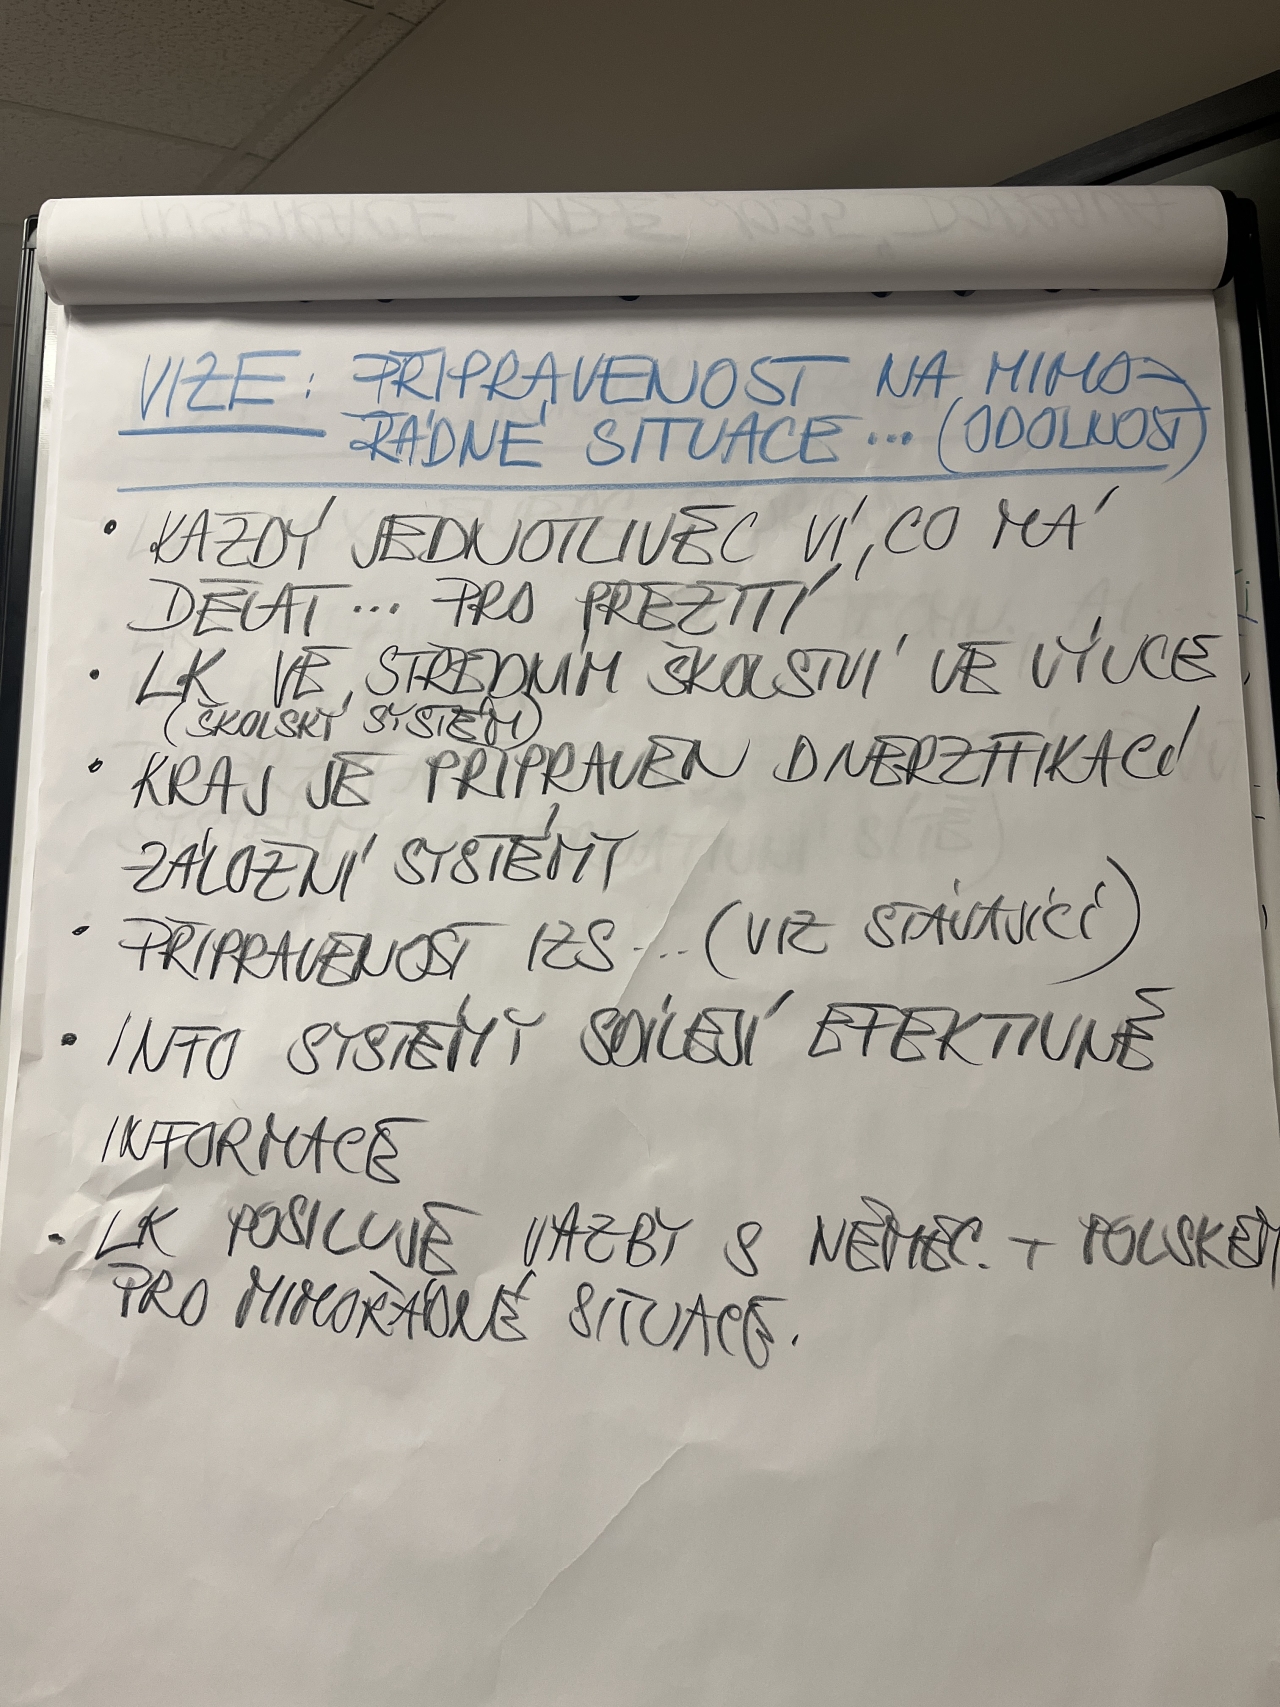 VIZE: PŘIPRAVENOST NA MIMO-
ŘÁDNÉ SITUACE... (ODOLNOST)
• KAŽDÝ JEDNOTLIVEC VÍ, CO MÁ
DĚLAT... PRO PŘEŽITÍ
• LK VE STŘEDNÍM ŠKOLSTVÍ VE VÝUCE
(ŠKOLSKÝ SYSTÉM)
• KRAJ JE PŘIPRAVEN DIVERZIFIKACÍ
ZÁLOŽNÍ SYSTÉMY
• PŘIPRAVENOST IZS... (VIZ STÁVAJÍCÍ)
• INFO SYSTÉMY SDÍLEJÍ EFEKTIVNĚ
INFORMACE
• LK POSILUJE VAZBY S NĚMEC. + POLSKEM
PRO MIMOŘÁDNÉ SITUACE.